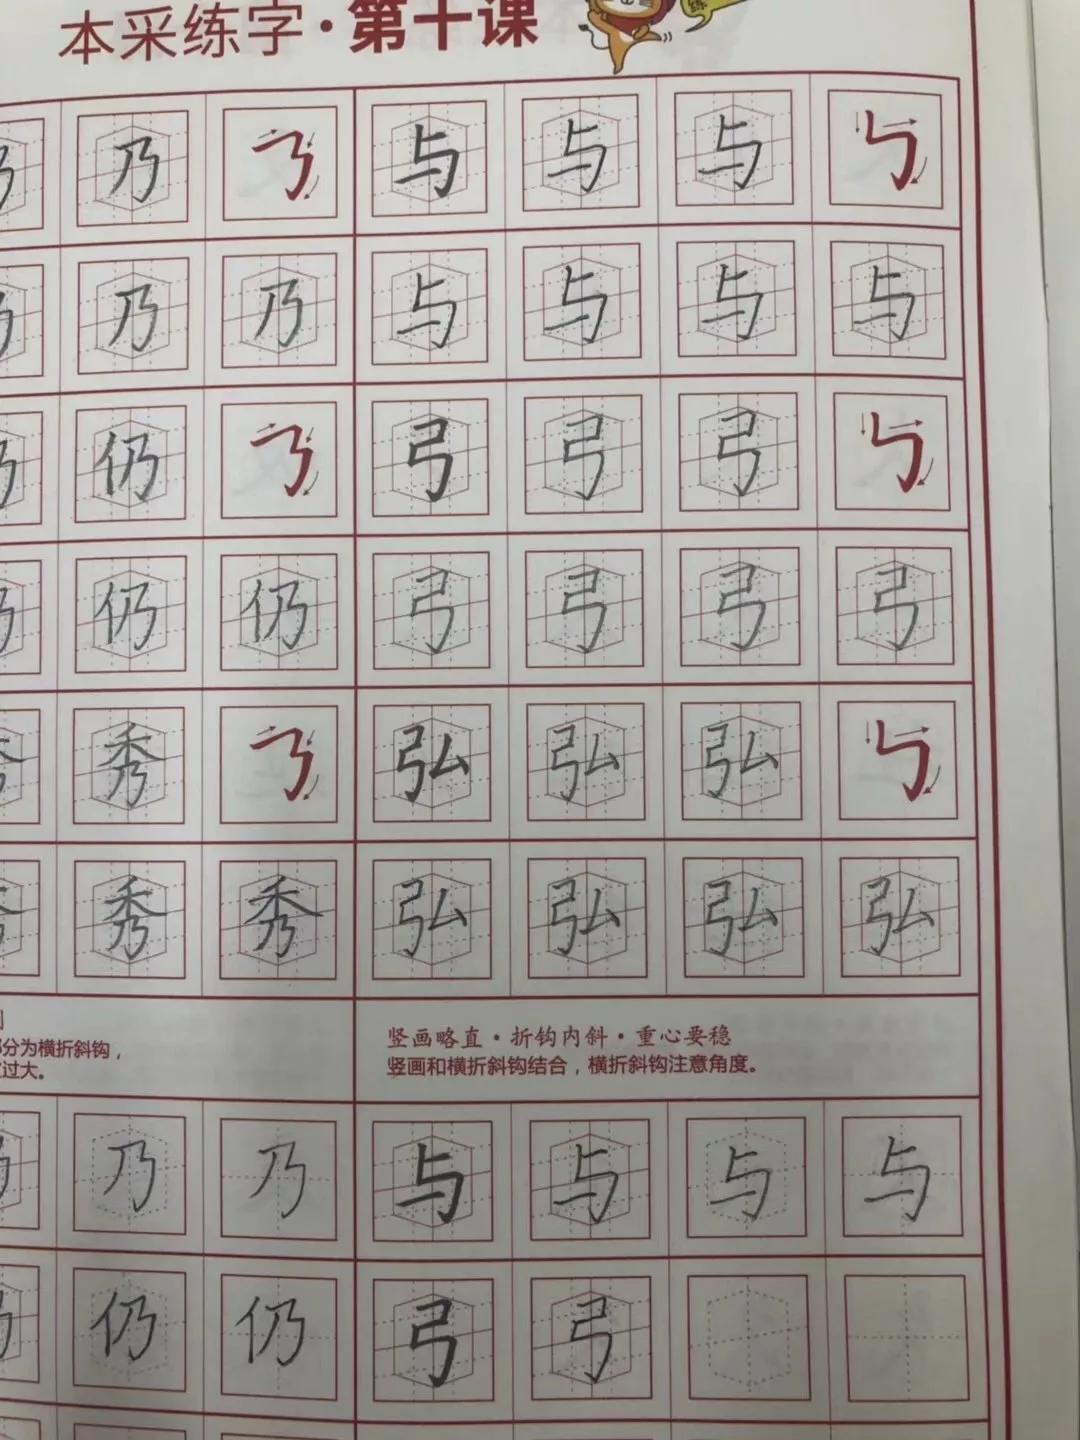 本采练字·第十课
练
乃 与 与 与
乃 乃 与 与 与 与
仍 弓 弓 弓
仍 仍 弓 弓 弓 弓
秀 弘 弘 弘
秀 秀 弘 弘 弘 弘
分为横折斜钩，
过大。
竖画略直·折钩内斜·重心要稳
竖画和横折斜钩结合，横折斜钩注意角度。
乃 乃 与 与 与 与
仍 仍 弓 弓